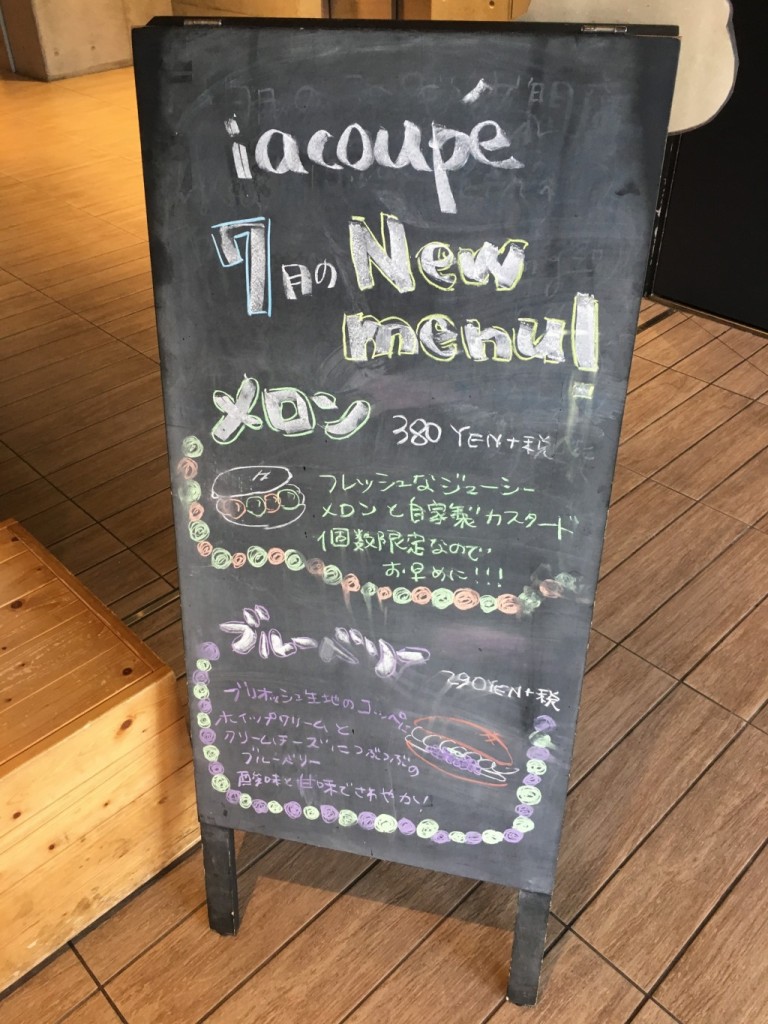 iacoupé
7月のNew
menu!
メロン 380 YEN+税
フレッシュなジューシー
メロンと自家製カスタード
個数限定なので、
お早めに!!!
ブルーベリー
290YEN+税
ブリオッシュ生地のコッペに
ホイップクリームと
クリームチーズにつぶつぶの
ブルーベリー
酸味と甘味でさわやか!